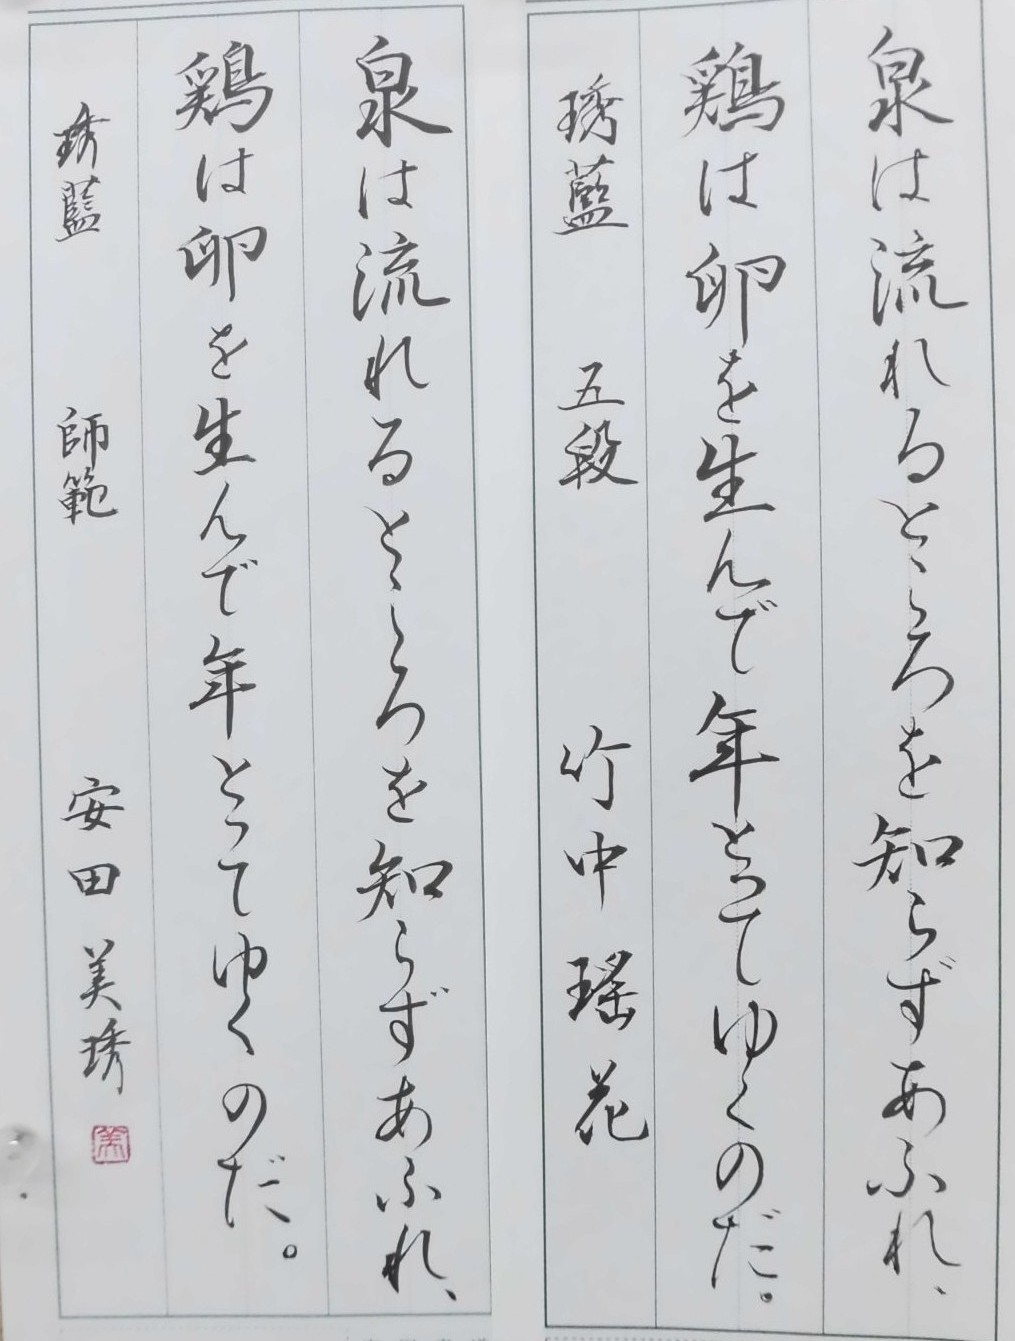 泉は流れるところを知らずあふれ、
鶏は卵を生んで年とってゆくのだ。
琇藍 五段 竹中瑶花
泉は流れるところを知らずあふれ、
鶏は卵を生んで年とってゆくのだ。
琇藍 師範 安田美琇
美